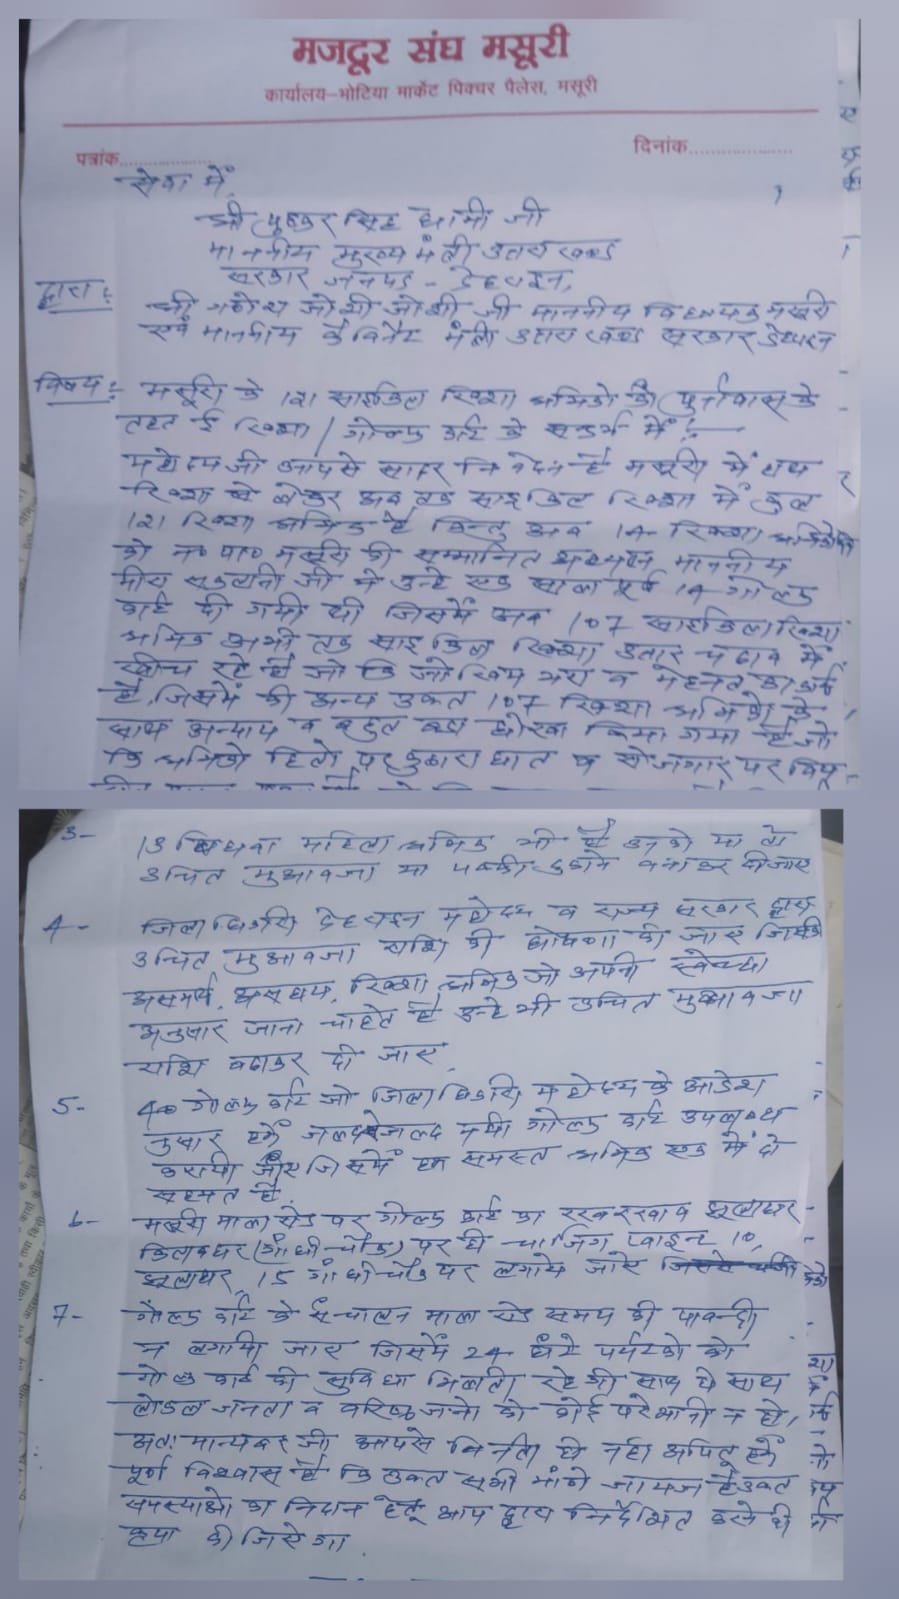 मजदूर संघ मसूरी
कार्यालय-भोटिया मार्केट पिक्चर पैलेस, मसूरी
पत्रांक..................
दिनांक....................
सेवा में,
श्री पुष्कर सिंह धामी जी
माननीय मुख्य मंत्री उत्तराखण्ड
सरकार जनपद - देहरादून,
द्वारा : श्री गणेश जोशी जोशी जी माननीय विधायक मसूरी
एवं माननीय कैबिनेट मंत्री उत्तराखण्ड सरकार देहरादून
विषय : मसूरी के 121 साईकिल रिक्शा श्रमिको को पुर्नवास के
तहत ई रिक्शा / गोल्फ कार्ट के सन्दर्भ में :-
महोदय जी आपसे सादर निवेदन है मसूरी में हाथ
रिक्शा से लेकर अब तक साइकिल रिक्शा में कुल
121 रिक्शा श्रमिक है किन्तु अब 14 रिक्शा श्रमिको
को न० पा० मसूरी की सम्मानित अध्यक्षा माननीय
मीरा सकलानी जी ने उन्हे एक साल पूर्व 14 गोल्फ
कार्ट दी गयी थी जिसमें अब 107 साईकिल रिक्शा
श्रमिक अभी तक साइकिल रिक्शा उतार चढाव में
खींच रहे है जो कि जोखिम भरा व मेहनत का कार्य
है, जिसमें की अन्य उक्त 107 रिक्शा श्रमिको के
साथ अन्याय व बहुत बड़ा धोखा किया गया है जो
कि श्रमिको हितो पर कुठाराघात व रोजगार पर
3- 13 विधवा महिला श्रमिक भी है उनको या तो
उचित मुआवजा या पक्की दुकाने बनाकर दी जाए
4- जिलाधिकारी देहरादून महोदय व राज्य सरकार द्वारा
उचित मुआवजा राशि की घोषणा की जाए जिसमें
असमर्थ, असहाय, रिक्शा श्रमिक जो अपनी स्वेच्छा
अनुसार जाना चाहते है उन्हे भी उचित मुआवजा
राशि बढाकर दी जाए,
5- 40 गोल्फ कार्ट जो जिलाधिकारी महोदय के आदेशा
नुसार हमें जल्द से जल्द नयी गोल्फ कार्ट उपलब्ध
करायी जाए जिसमें हम समस्त श्रमिक एक में दो
सहमत है.
6- मसूरी माल रोड पर गोल्फ कार्ट का रखरखाव झूलाघर
किताबघर (गाँधी चौक) पर ही चार्जिंग प्वाइन्ट 10,
झूलाघर, 15 गाँधी चौक पर लगाये जाये
7- गोल्फ कार्ट के संचालन माल रोड समय की पाबन्दी
न लगायी जाए जिसमें 24 घंटे पर्यटको को
गोल्फ कार्ट की सुविधा मिलती रहेगी साथ ही साथ
लोकल जनता व वरिष्ठ जनो को कोई परेशानी न हो,
अतः मान्यवर जी आपसे विनती ही नही अपितू हमें
पूर्ण विश्वास है कि उक्त सभी मांगे जायज है उक्त
समस्याओ का निदान हेतू आप द्वारा निर्देशित करने की
कृपा कीजिएगा